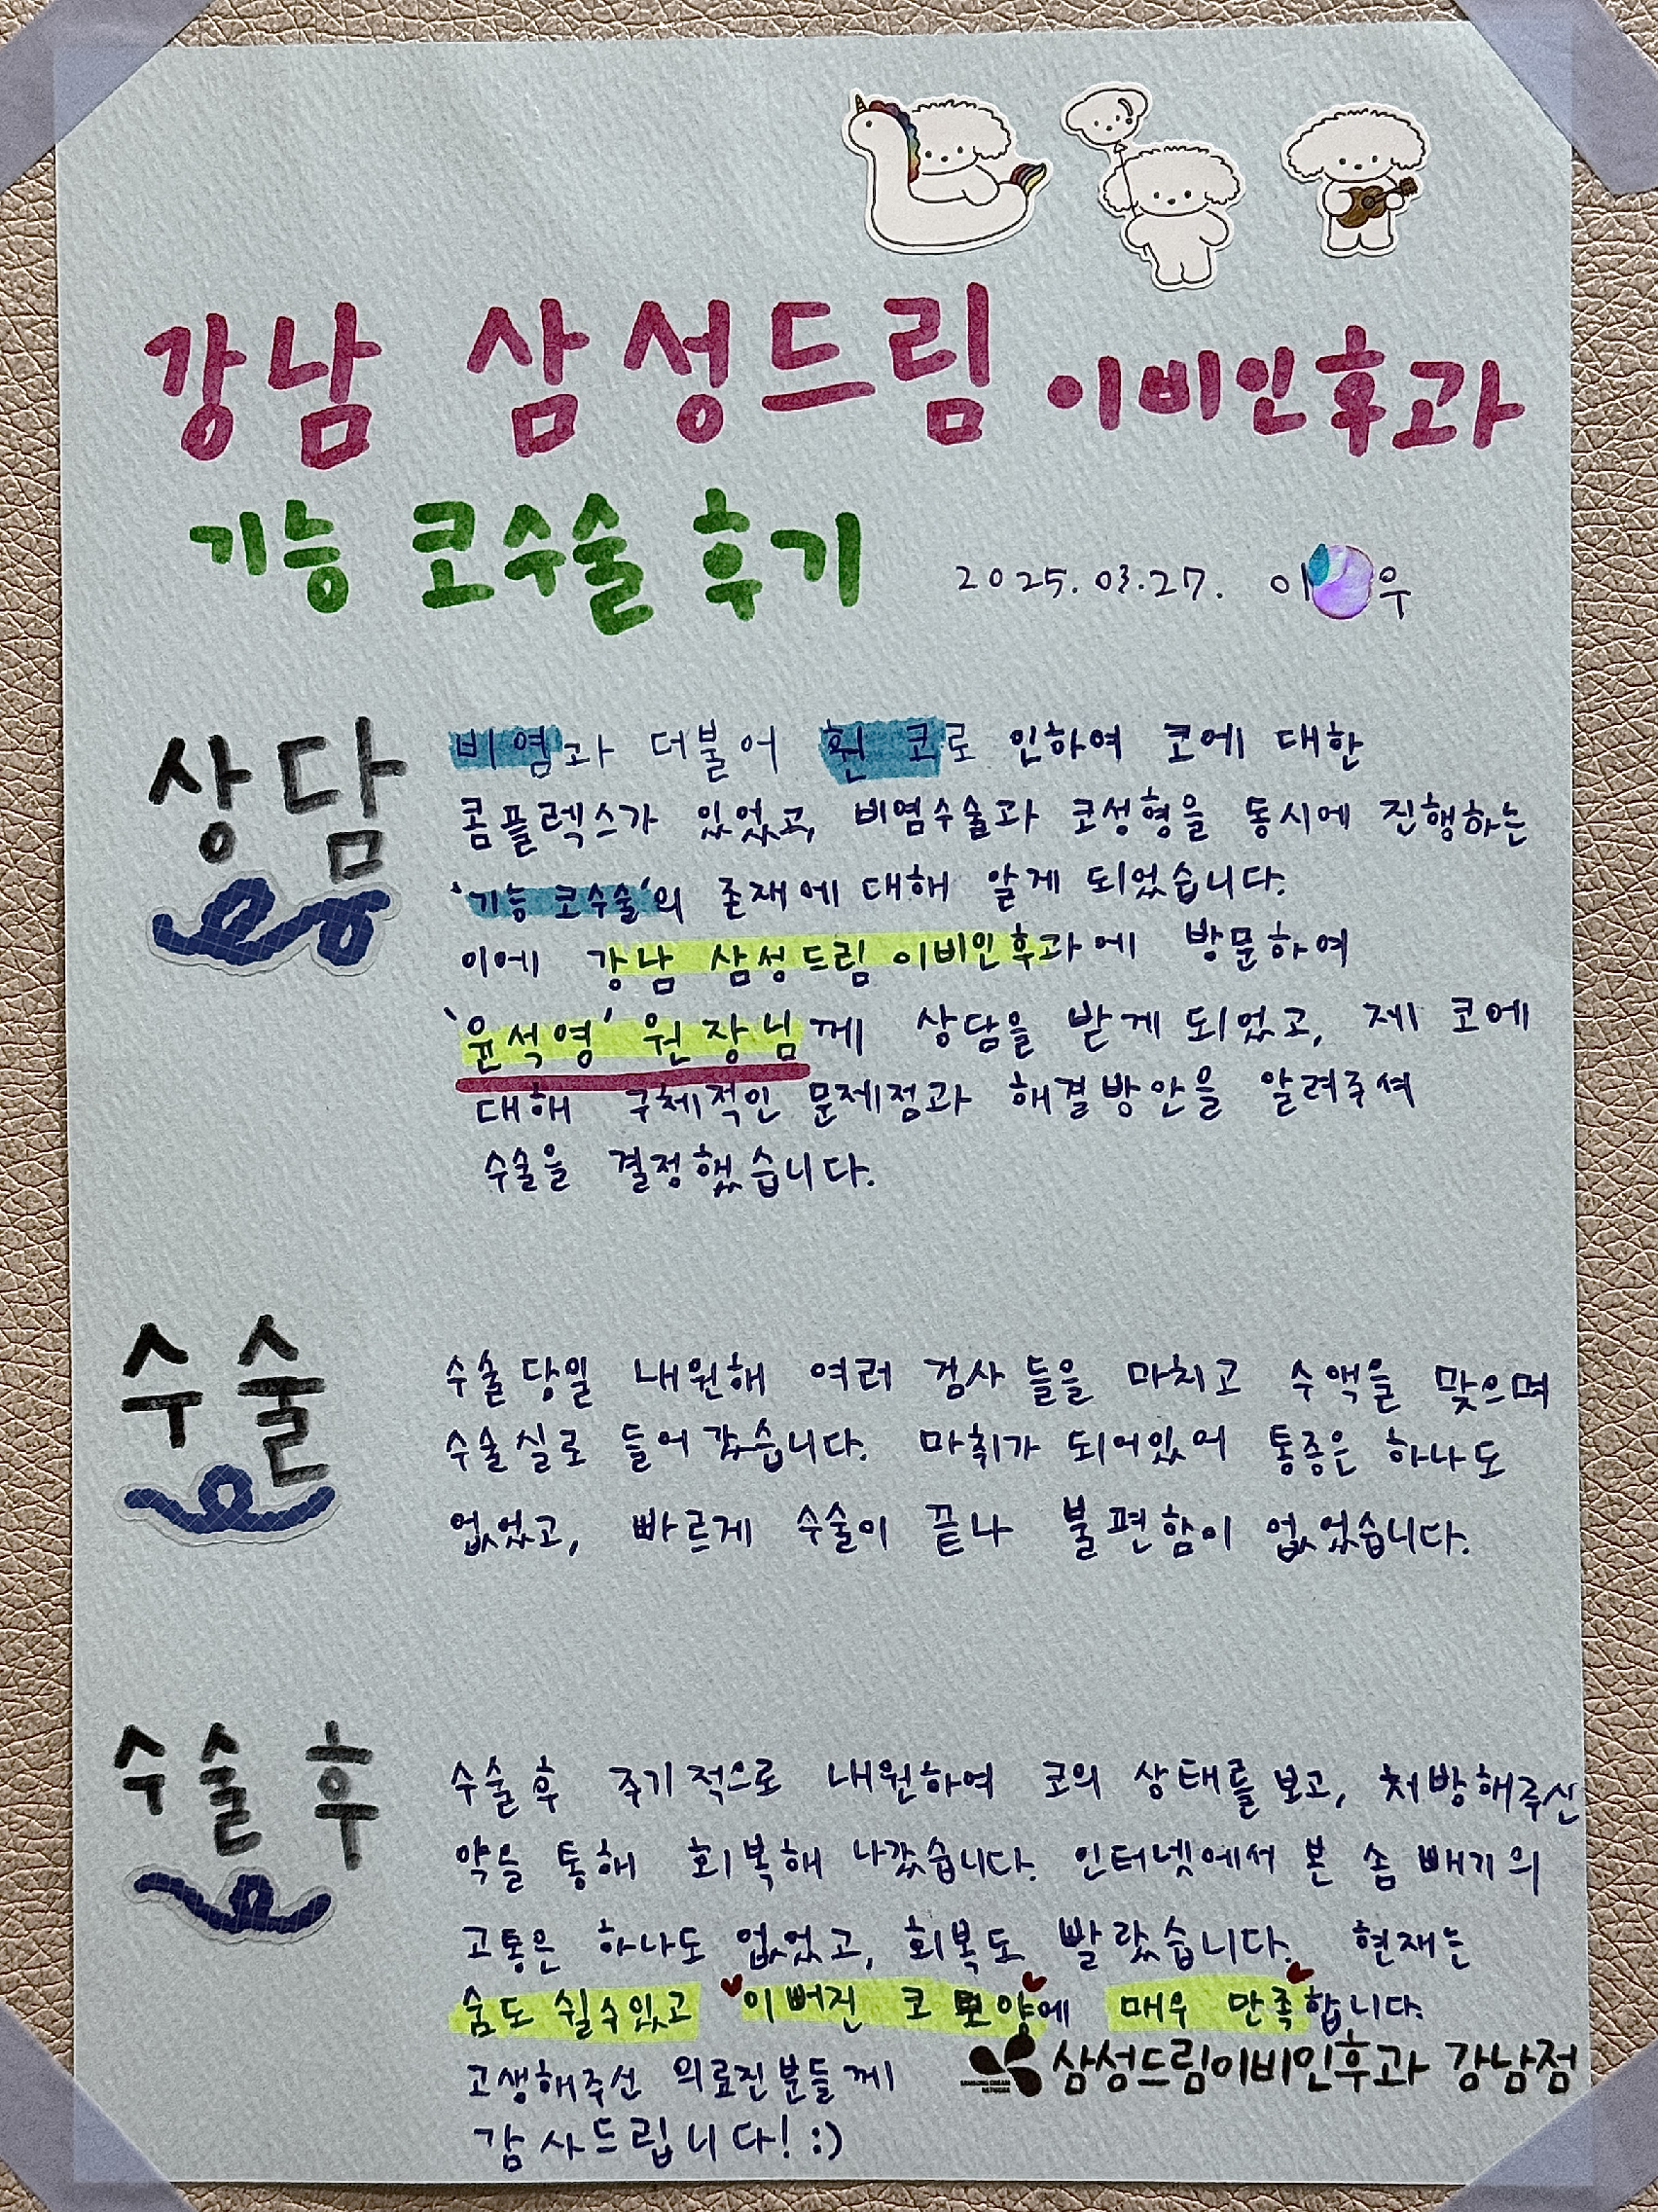 강남 삼성드림 이비인후과
기능 코수술 후기
2025.03.27. 이 우
상담
비염과 더불어 휜 코로 인하여 코에 대한
콤플렉스가 있었고, 비염수술과 코성형을 동시에 진행하는
'기능 코수술'의 존재에 대해 알게 되었습니다.
이에 강남 삼성드림 이비인후과에 방문하여
'윤석영' 원장님께 상담을 받게 되었고, 제 코에
대해 구체적인 문제점과 해결방안을 알려주셔
수술을 결정했습니다.
수술
수술 당일 내원해 여러 검사들을 마치고 수액을 맞으며
수술실로 들어갔습니다. 마취가 되어있어 통증은 하나도
없었고, 빠르게 수술이 끝나 불편함이 없었습니다.
수술 후
수술 후 주기적으로 내원하여 코의 상태를 보고, 처방해주신
약을 통해 회복해 나갔습니다. 인터넷에서 본 솜 빼기의
고통은 하나도 없었고, 회복도 빨랐습니다. 현재는
숨도 쉴수있고 이뻐진 코 모양에 매우 만족합니다.
고생해주신 의료진분들께
감사드립니다! :)
삼성드림이비인후과 강남점